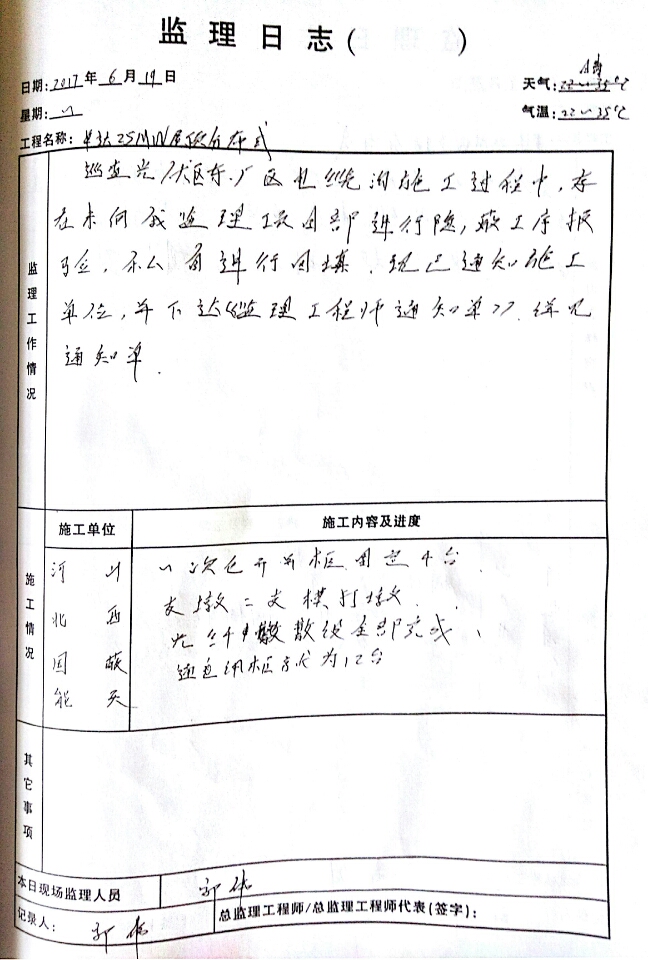 监理日志( )
日期:2017年6月19日
天气:晴
星期:一
气温:22~35℃
工程名称: 25MW屋顶分布式
监理工作情况
巡查光伏区东厂区电缆沟施工过程中,存
在未向我监理项目部进行隐蔽工序报
验,私自进行回填.现已通知施工
单位,并下达《监理工程师通知单》.详见
通知单.
施工情况
施工单位
施工内容及进度
河北国能
山西
一次仓开关柜固定4台
支墩二支模打墩
全部完成、
为12台
其它事项
本日现场监理人员
郭伟
记录人: 郭伟
总监理工程师/总监理工程师代表(签字):